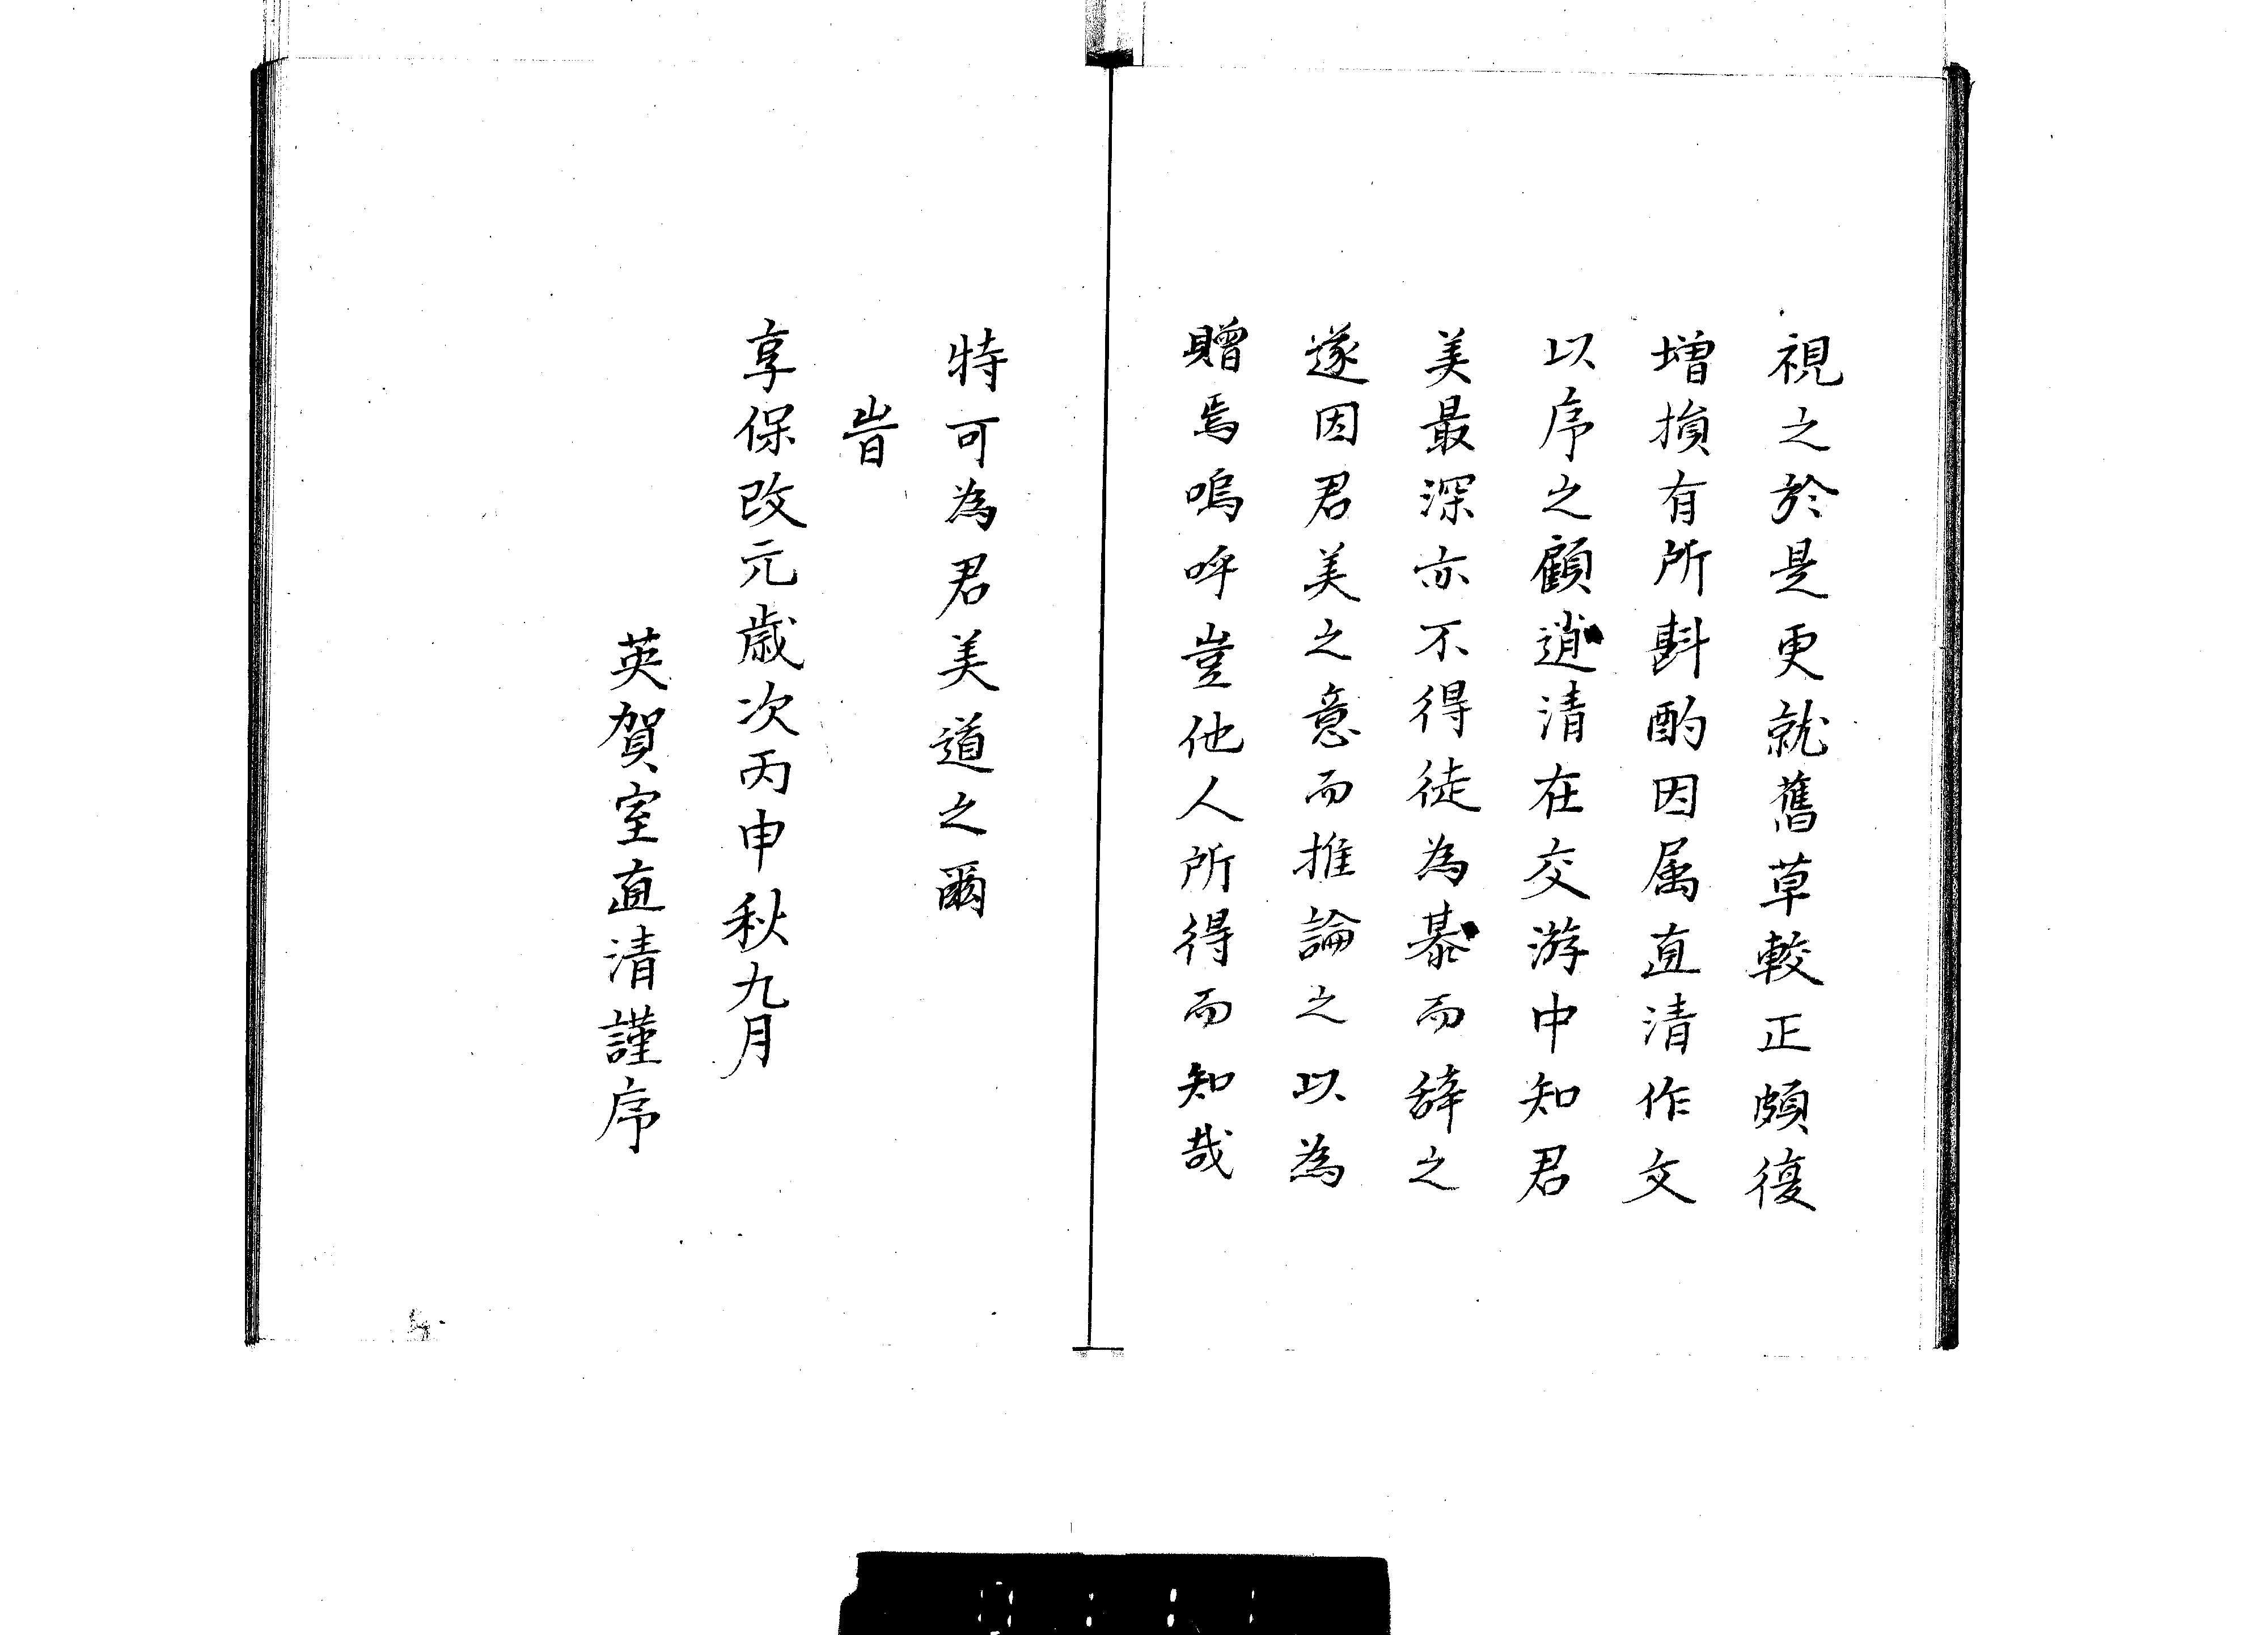 視之於是更就舊草較正頗復
増損有所斟酌因属直清作文
以序之顧逍清在交游中知君
美最深亦不得徒為慕而辞之
遂因君美之意而推論之以為
贈焉嗚呼豈他人所得而知哉
特可為君美道之爾
旹
享保改元歳次丙申秋九月
英賀室直清謹序